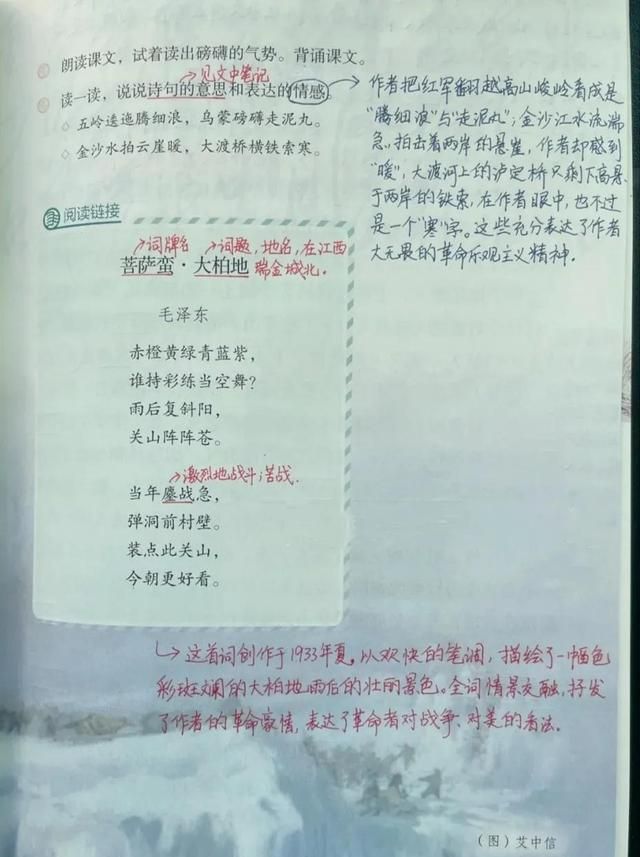 朗读课文，试着读出磅礴的气势。背诵课文。
见文中笔记
读一读，说说诗句的意思和表达的情感。
五岭逶迤腾细浪，乌蒙磅礴走泥丸。
金沙水拍云崖暖，大渡桥横铁索寒。
作者把红军翻越高山峻岭看成是
“腾细浪”与“走泥丸”；金沙江水流湍
急，拍击着两岸的悬崖，作者却感到
“暖”，大渡河上的泸定桥只剩下高悬
于两岸的铁索，在作者眼中，也不过
是一个“寒”字。这些充分表达了作者
大无畏的革命乐观主义精神．
阅读链接
词牌名 词题，地名，在江西
菩萨蛮·大柏地 瑞金城北．
毛泽东
赤橙黄绿青蓝紫，
谁持彩练当空舞？
雨后复斜阳，
关山阵阵苍。
激烈地战斗；苦战．
当年鏖战急，
弹洞前村壁。
装点此关山，
今朝更好看。
这首词创作于1933年夏。以欢快的笔调，描绘了一幅色
彩斑斓的大柏地雨后的壮丽景色。全词情景交融，抒发
了作者的革命豪情，表达了革命者对战争、对美的看法．
（图）艾中信